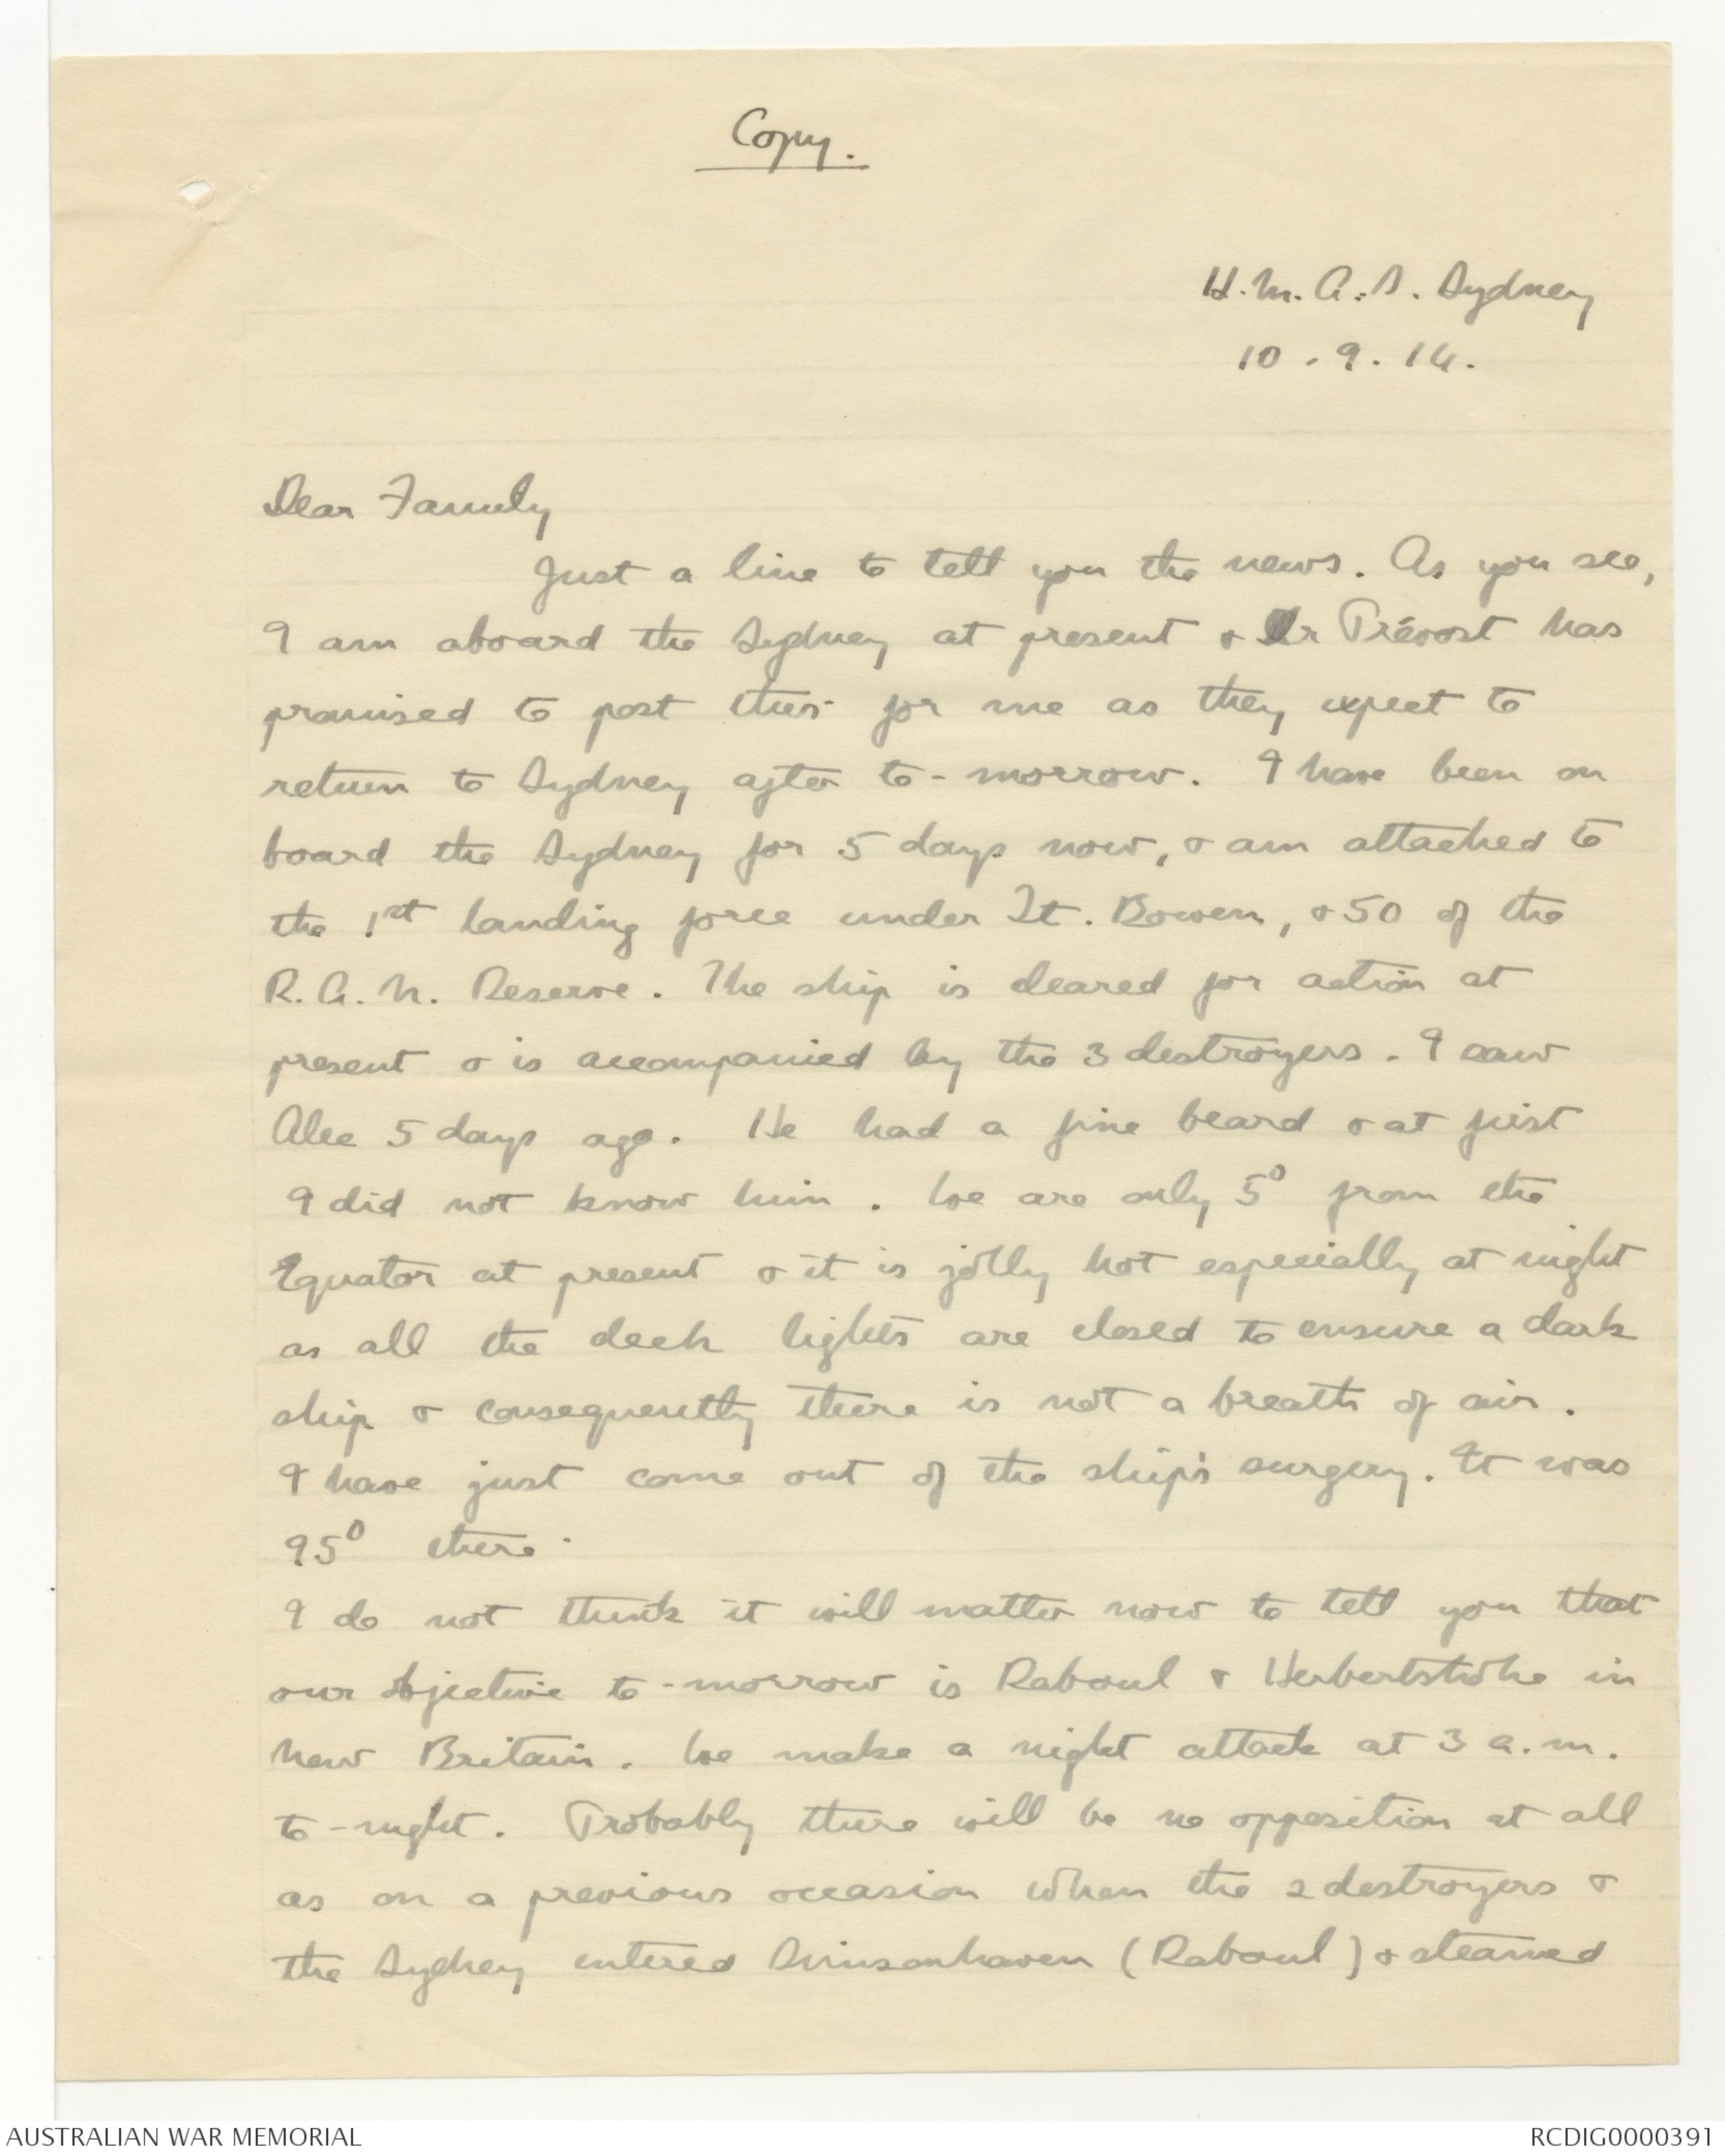 Copy.
H.M.A.S. Sydney
10.9.14.
Dear Family
Just a line to tell you the news. As you see,
I am aboard the Sydney at present & Dr Trévost has
promised to post this for me as they expect to
return to Sydney after to-morrow. I have been on
board the Sydney for 5 days now, & am attached to
the 1st landing force under Lt. Bowen, & 50 of the
R.A.N. Reserve. The ship is cleared for action at
present & is accompanied by the 3 destroyers. I saw
Alec 5 days ago. He had a fine beard & at first
I did not know him. We are only 5° from the
Equator at present & it is jolly hot especially at night
as all the deck lights are closed to ensure a dark
ship & consequently there is not a breath of air.
I have just come out of the ship's surgery. It was
95° there.
I do not think it will matter now to tell you that
our objective to-morrow is Raboul & Herbertshöhe in
New Britain. We make a night attack at 3 a.m.
to-night. Probably there will be no opposition at all
as on a previous occasion when the 2 destroyers &
the Sydney entered (Raboul) & steamed
AUSTRALIAN WAR MEMORIAL
RCDIG0000391